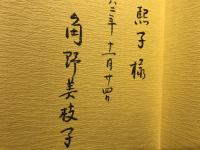 熙子様
八二年十一月廿四日
角野美枝子